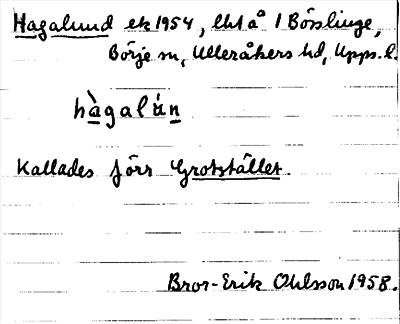 Hagalund ek 1954, lht å 1 Börslinge,
Börje sn, Ulleråkers hd, Upps. l.
hàgalún
Kallades förr Grotstället.
Bror-Erik Ohlsson 1958.